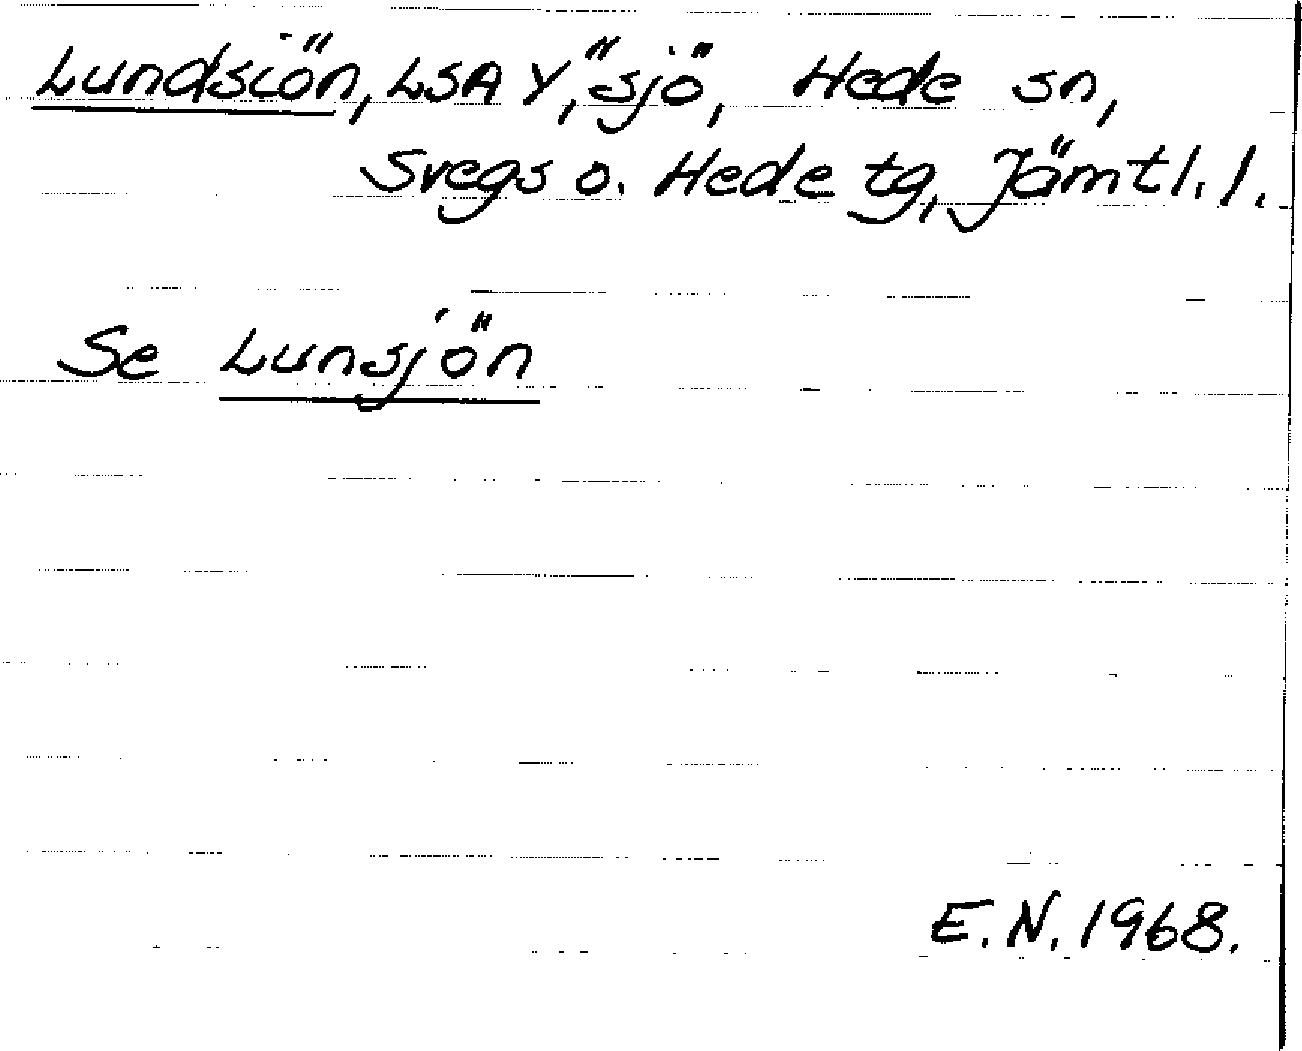 Lundsiön, LSA Y, "sjö, Hede sn,
Svegs o. Hede tg, Jämtl. l.
Se Lunsjön
E.N. 1968.